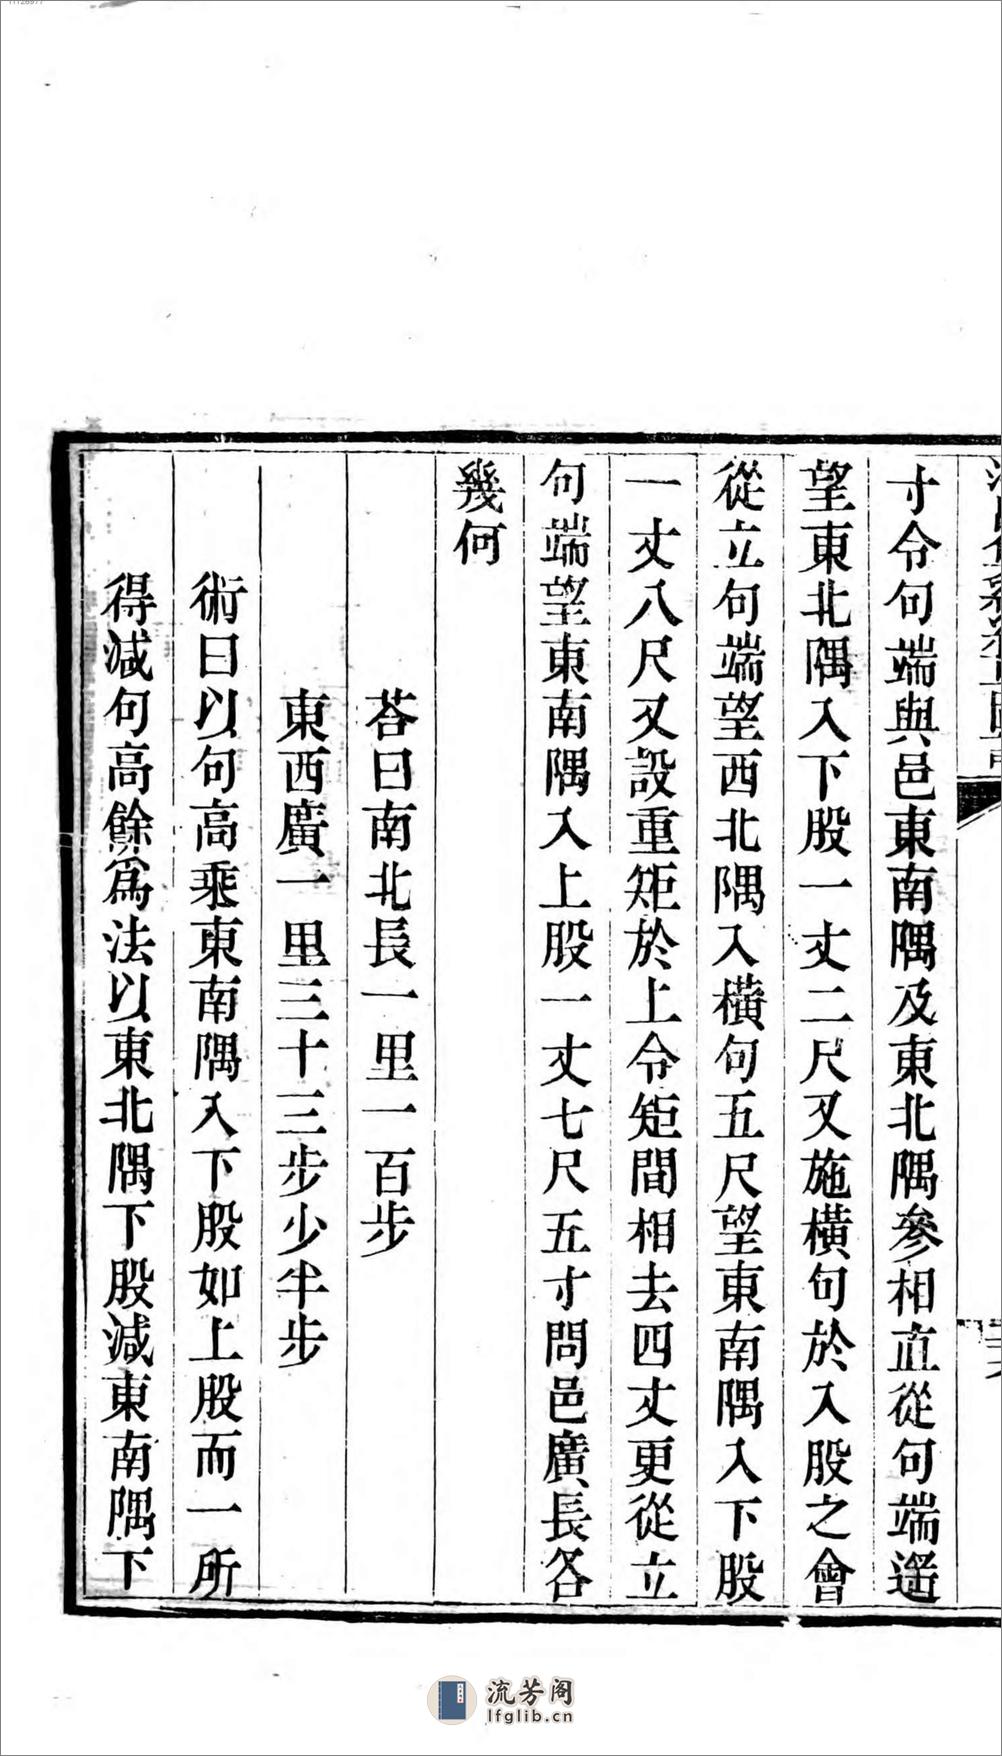 寸令句端與邑東南隅及東北隅參相直從句端遥
望東北隅入下股一丈二尺又施橫句於入股之會
從立句端望西北隅入橫句五尺望東南隅入下股
一丈八尺又設重矩於上令矩間相去四丈更從立
句端望東南隅入上股一丈七尺五寸問邑廣長各
幾何
荅曰南北長一里一百步
東西廣一里三十三步少半步
術曰以句高乘東南隅入下股如上股而一所
得減句高餘爲法以東北隅下股減東南隅下
流芳阁
lfglib.cn